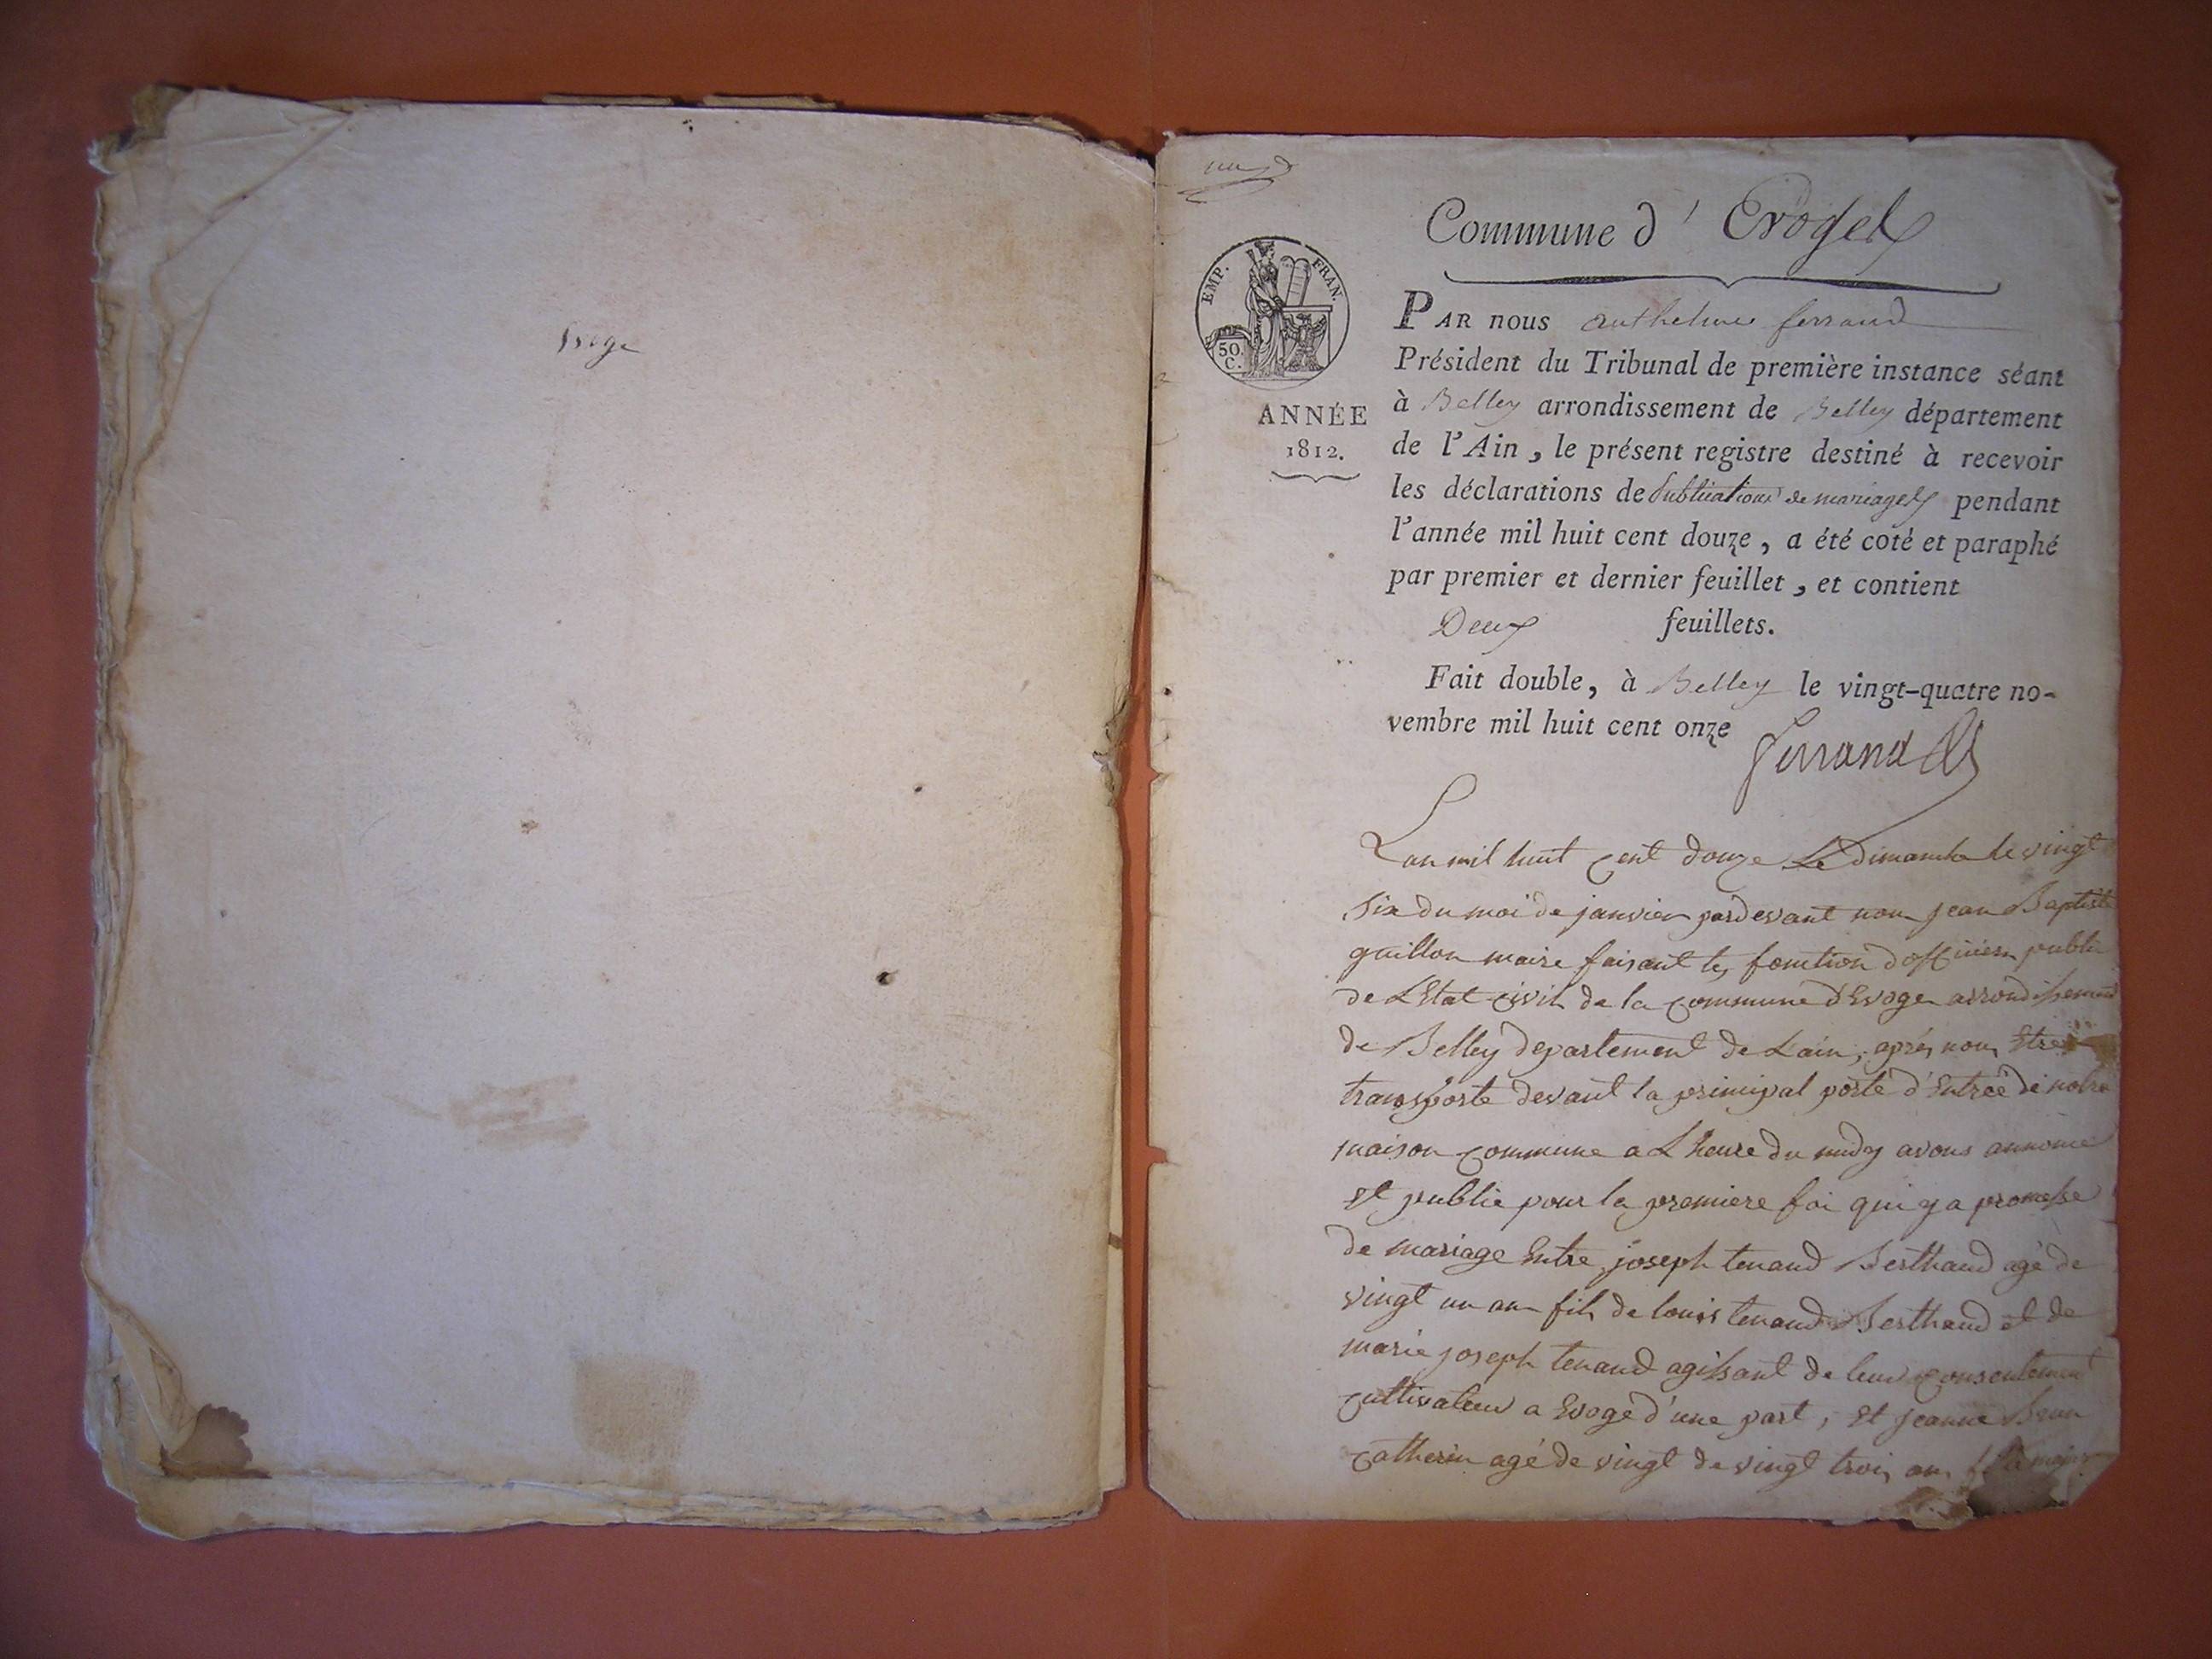 Evoge
Commune d' Evoges
EMP. FRAN.
50.
C.
ANNÉE
1812.
PAR nous anthelme ferrand
Président du Tribunal de première instance séant
à Belley arrondissement de Belley département
de l'Ain, le présent registre destiné à recevoir
les déclarations de publications de mariages pendant
l'année mil huit cent douze, a été coté et paraphé
par premier et dernier feuillet, et contient
Deux feuillets.
Fait double, à Belley le vingt-quatre no-
vembre mil huit cent onze
Ferrand
Lan mil huit cent douze Le Dimanche le vingt
six du moi de janvier pardevant nous jean Baptiste
guillon maire faisant les fonction d'officier public
de L'Etat civil de la commune d'Evoge arrondissement
de Belley departement de Lain, aprés nous Etre
transporte devant la principal porte d'Entrée de notre
maison commune a L'heure du midy avons annoncé
Et publie pour la premiere foi qui y a promesse
de mariage Entre joseph tenand Berthaud agé de
vingt un an fils de louis tenand Berthaud et de
marie joseph tenand agissant de leur consentement
cultivateur a Evoge d'une part, Et jeanne Bean
catherin agé de vingt de vingt trois an